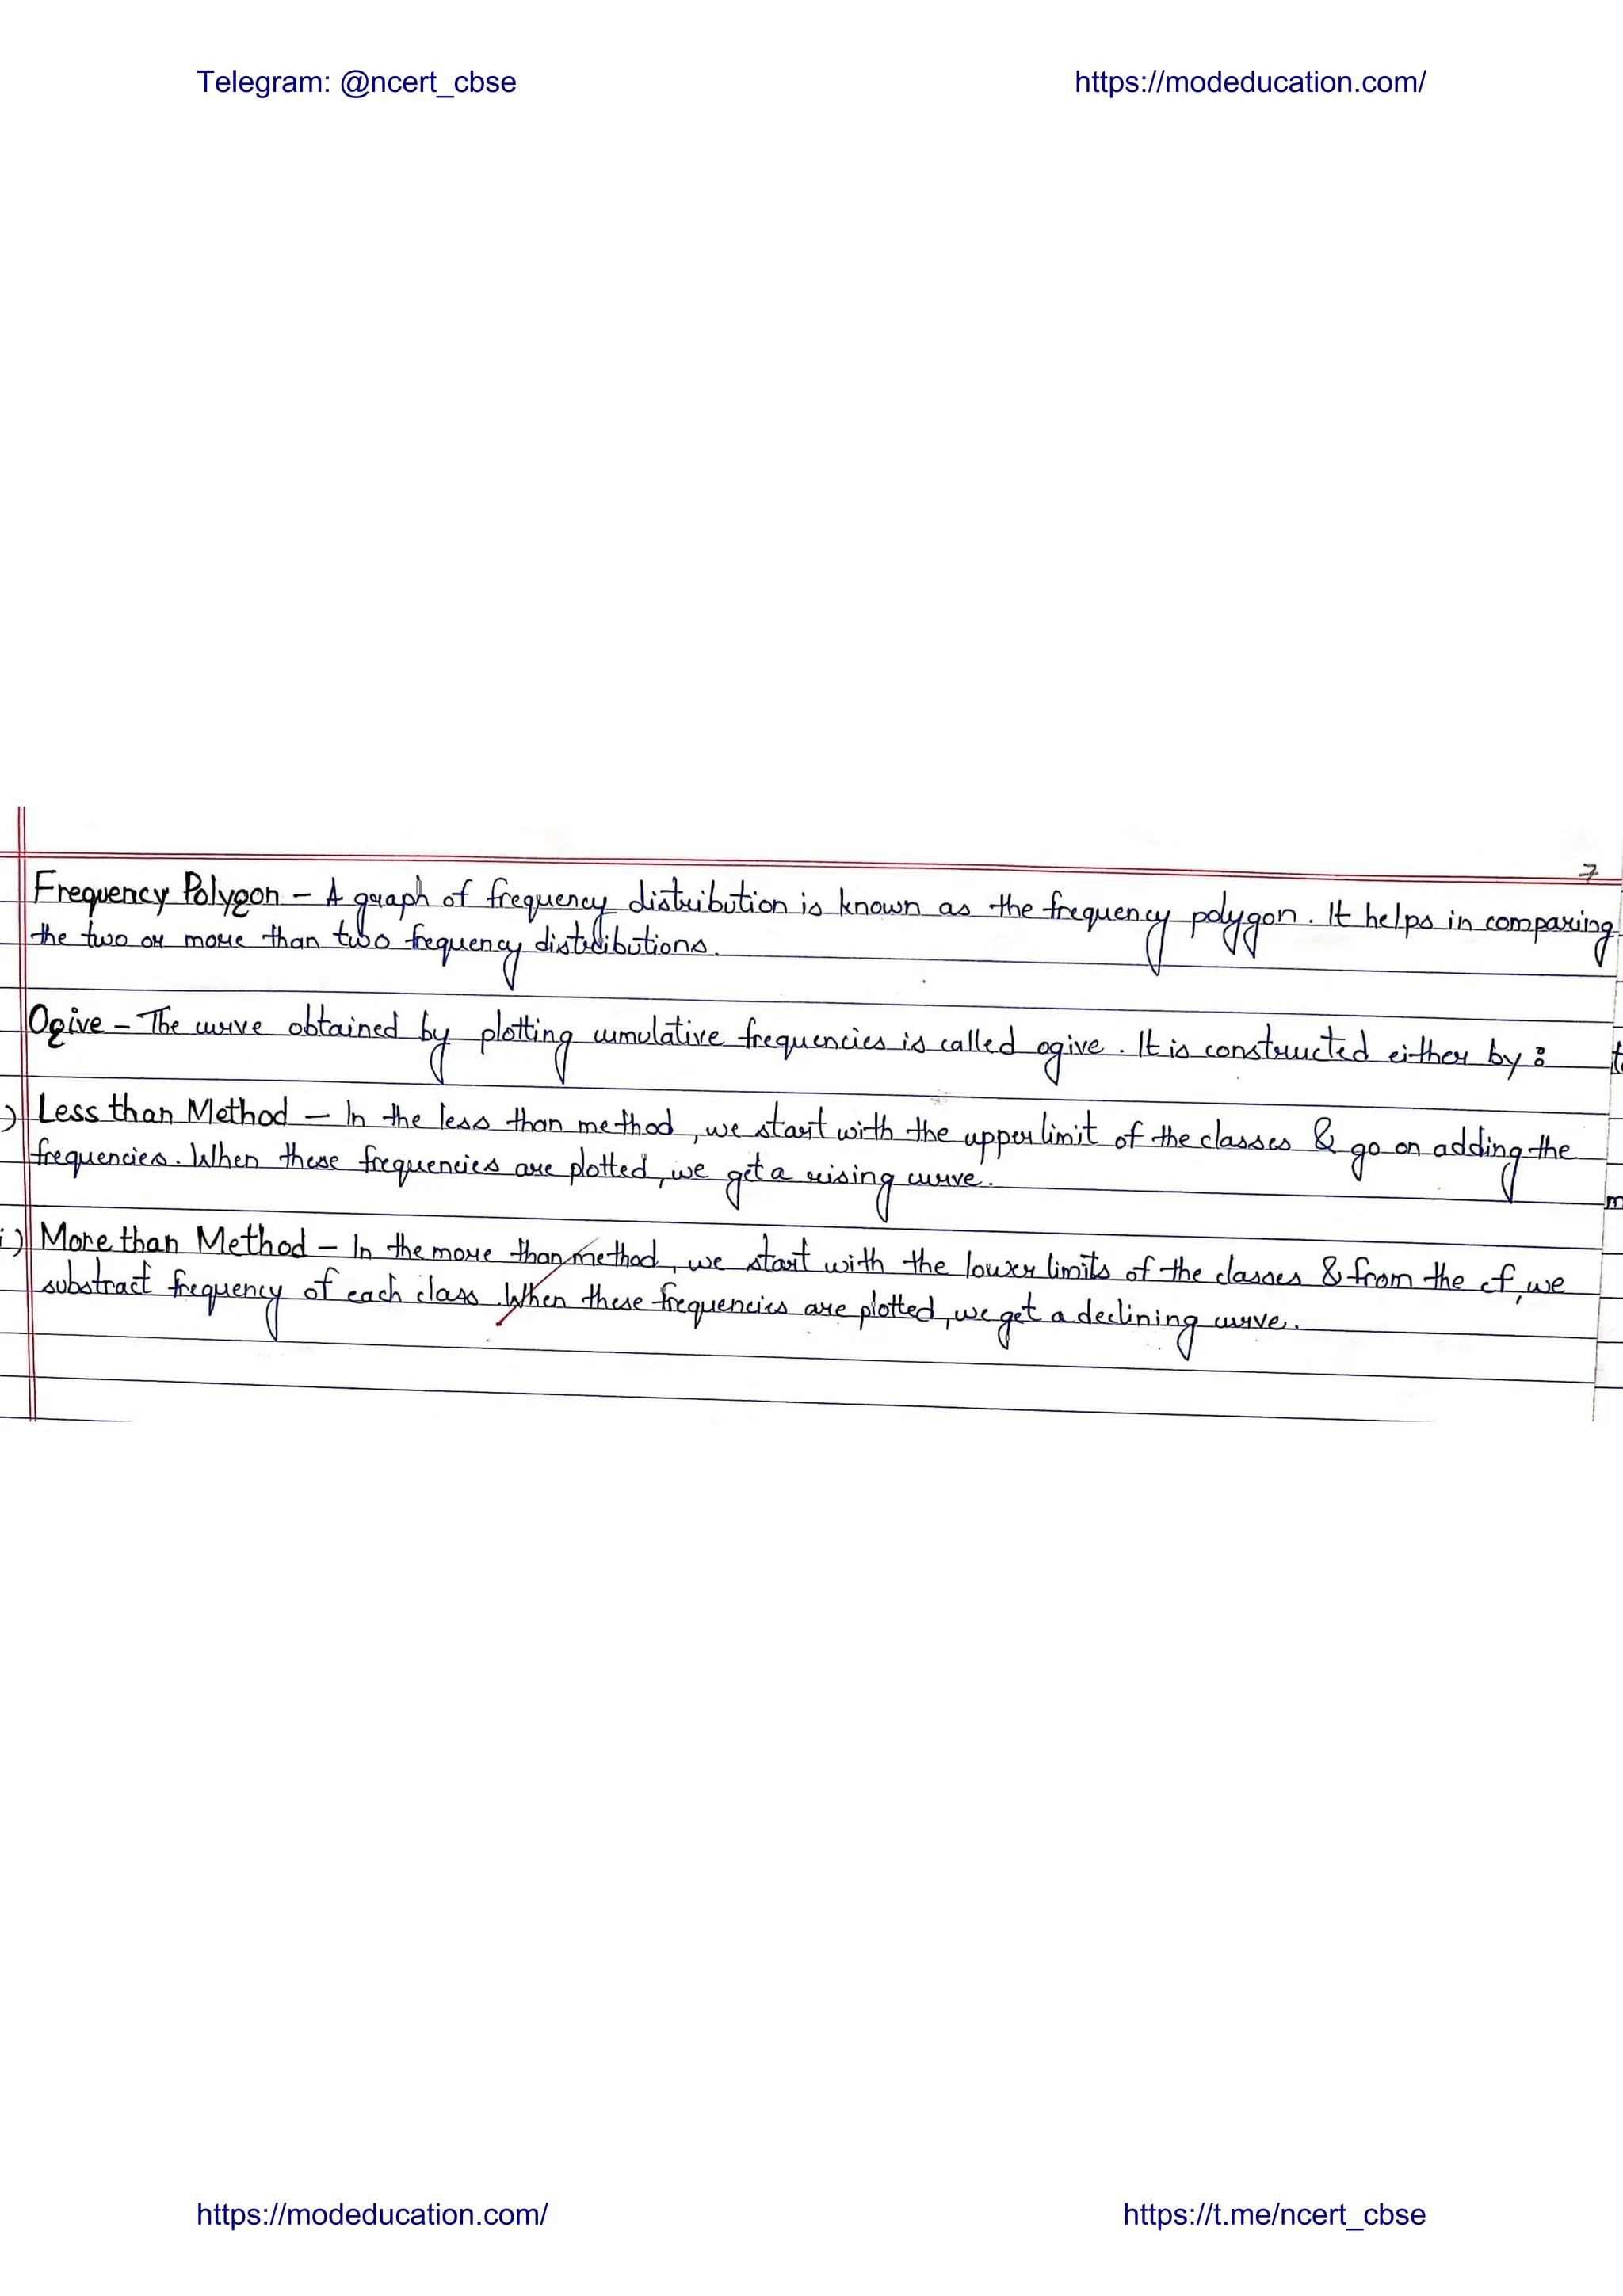 Telegram: @ncert_cbse https://modeducation.com/
7
Frequency Polygon - A graph of frequency distribution is known as the frequency polygon. It helps in comparing
the two or more than two frequency distributions.
Ogive - The curve obtained by plotting cumulative frequencies is called ogive. It is constructed either by:
) Less than Method - In the less than method, we start with the upper limit of the classes & go on adding the
frequencies. When these frequencies are plotted, we get a rising curve.
i) More than Method - In the more than method, we start with the lower limits of the classes & from the cf, we
substract frequency of each class. When these frequencies are plotted, we get a declining curve.
https://modeducation.com/ https://t.me/ncert_cbse